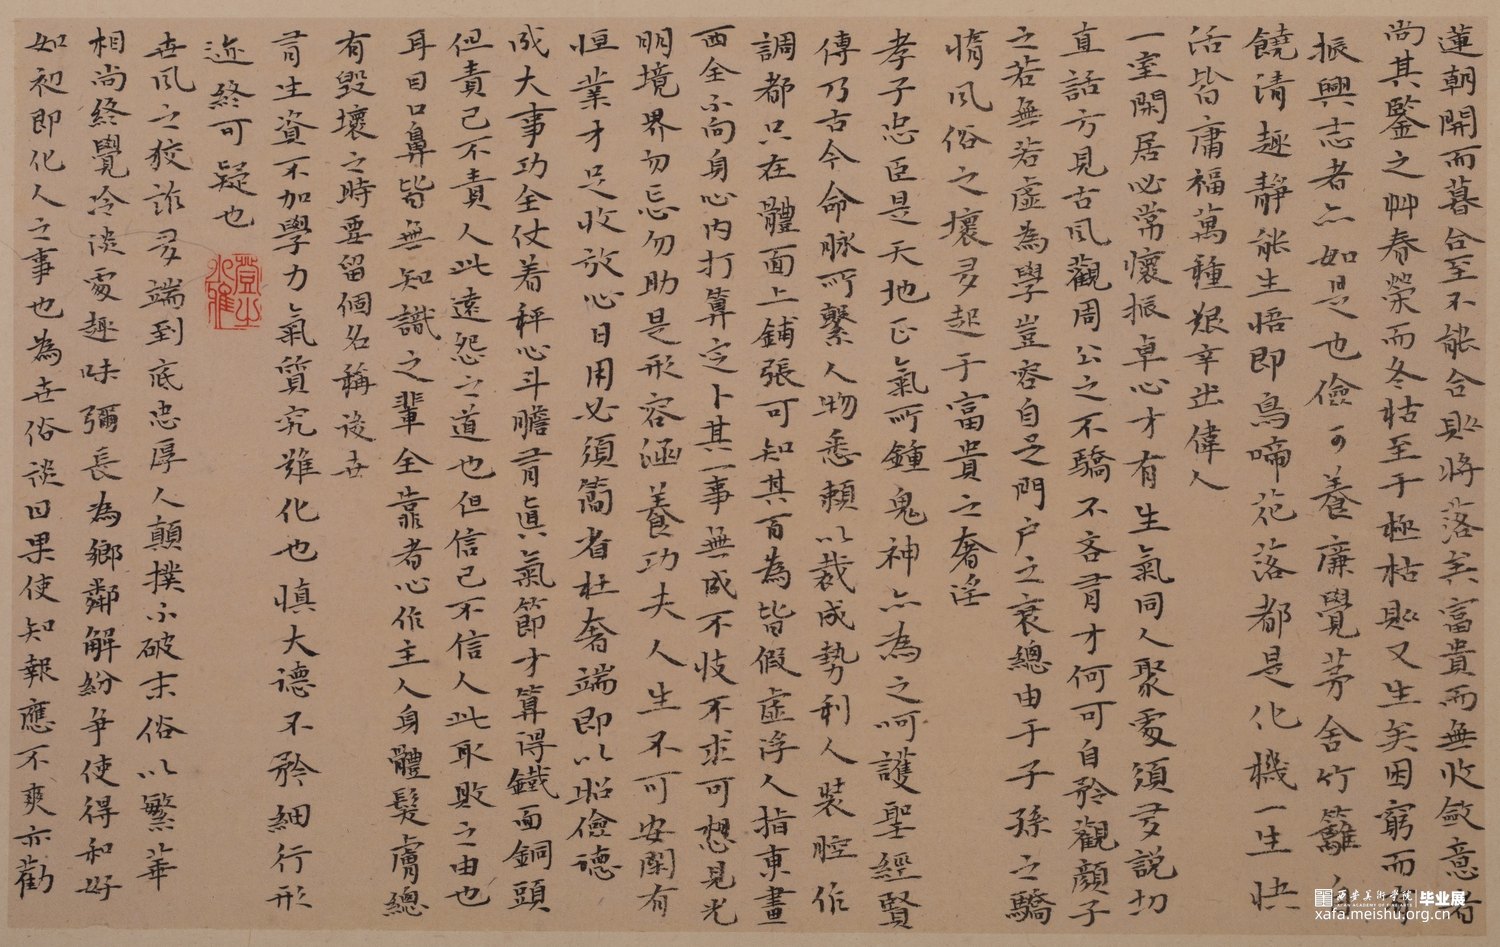 蓮朝開而暮合至不能合則將落矣富貴而無收斂意者
尚其鑒之艸春榮而冬枯至于極枯則又生矣困窮而有
振興志者亦如是也儉可養廉覺茅舍竹籬自
饒清趣靜能生悟即鳥啼花落都是化機一生快
活皆庸福萬種艱辛出偉人
一室閑居必常懷振卓心才有生氣同人聚處須多說切
直話方見古風觀周公之不驕不吝有才何可自矜觀顏子
之若無若虛為學豈容自足門戶之衰總由于子孫之驕
惰風俗之壞多起于富貴之奢淫
孝子忠臣是天地正氣所鍾鬼神亦為之呵護聖經賢
傳乃古今命脉所繫人物悉賴以裁成勢利人裝腔作
調都只在體面上鋪張可知其百為皆假虛浮人指東畫
西全不向身心内打算定卜其一事無成不忮不求可想見光
明境界勿忘勿助是形容涵養功夫人生不可安閑有
恒業才足收放心日用必須簡省杜奢端即以昭儉德
成大事功全仗着秤心斗膽有真氣節才算得鐵面銅頭
但責己不責人此遠怨之道也但信己不信人此取敗之由也
耳目口鼻皆無知識之輩全靠者心作主人身體髮膚總
有毀壞之時要留個名稱後世
有生資不加學力氣質究難化也慎大德不矜細行形
迹終可疑也
世風之狡詐多端到底忠厚人顛撲不破末俗以繁華
相尚終覺冷淡處趣味彌長為鄉鄰解紛爭使得和好
如初即化人之事也為世俗談因果使知報應不爽亦勸
西安美术学院 毕业展
XI'AN ACADEMY OF FINE ARTS
xafa.meishu.org.cn